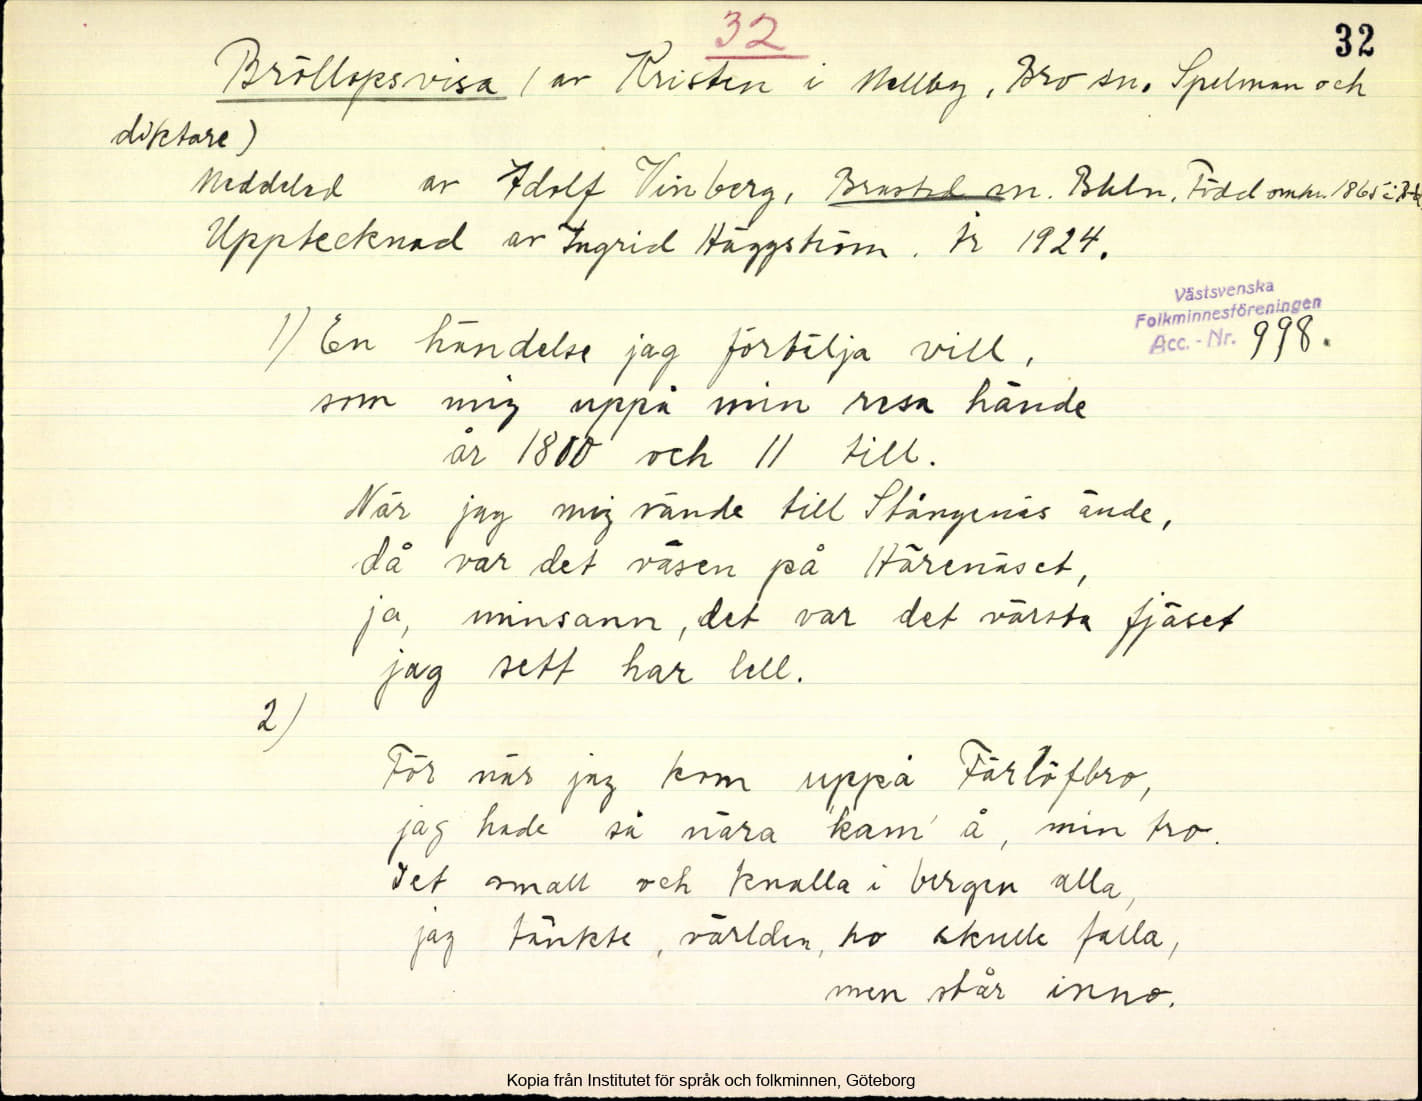 32
32
Bröllopsvisa (av Kristen i Mellby, Bro sn. Spelman och
diktare)
Meddelad av Adolf Vinberg, Brastad sn. Bhln. Född omkr. 1865 i
Upptecknad av Ingrid Häggström. År 1924.
Västsvenska
Folkminnesföreningen
Acc.-Nr. 998.
1) En händelse jag förtälja vill,
som mig uppå min resa hände
år 1800 och 11 till.
När jag mig vände till Stångenäs ände,
då var det väsen på Härenäset,
ja, minsann, det var det värsta fjäset
jag sett har lell.
2)
För när jag kom uppå Färlöfbro,
jag hade så nära 'kam' å, min tro.
Det small och knalla i bergen alla,
jag tänkte, världen, ho skulle falla,
men står inno.
Kopia från Institutet för språk och folkminnen, Göteborg